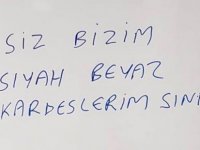 SİZ BİZİM
SIYAH BEYAZ
KARDESLERIM SINI